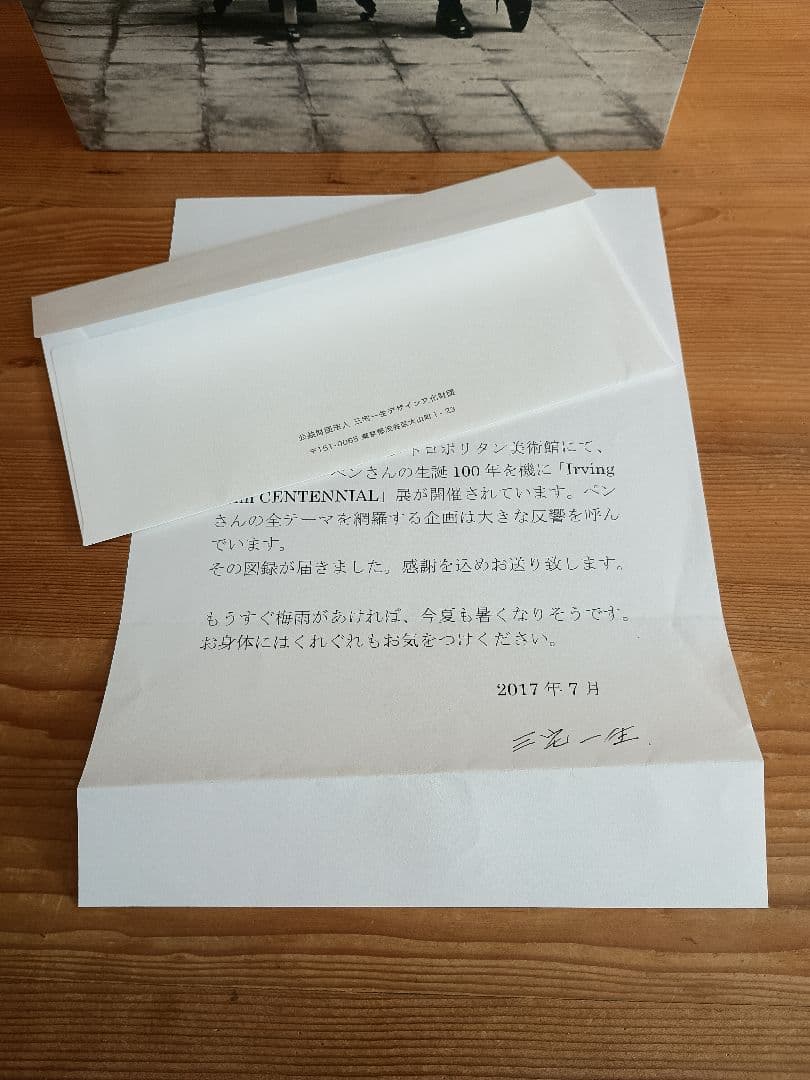 公益財団法人 三宅一生デザイン文化財団
〒151-0065 東京都渋谷区大山町1-23
トロポリタン美術館にて、
ペンさんの生誕 100 年を機に「Irving
CENTENNIAL」展が開催されています。ペン
さんの全テーマを網羅する企画は大きな反響を呼ん
でいます。
その図録が届きました。感謝を込めお送り致します。
もうすぐ梅雨があければ、今夏も暑くなりそうです。
お身体にはくれぐれもお気をつけください。
2017 年 7 月
三宅一生